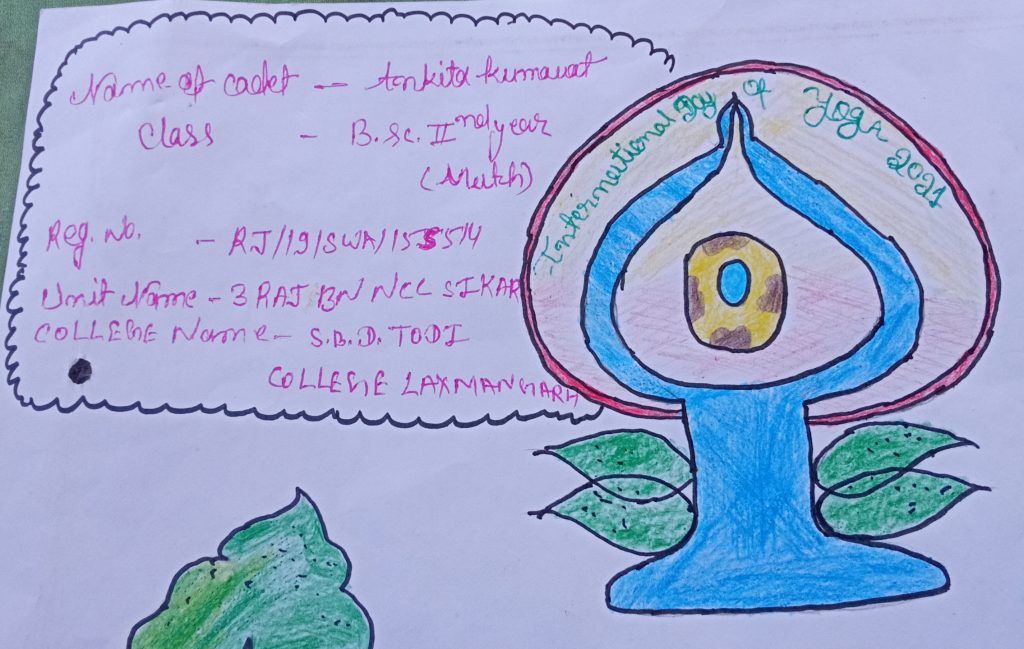 Name of cadet - Ankita Kumawat
Class - B.Sc. IInd year
(Math)
Reg. No. - RJ/19/SWA/155514
Unit Name - 3 RAJ BN NCC SIKAR
COLLEGE Name - S.B.D. TODI
COLLEGE LAXMANGARH
International Day of Yoga 2021